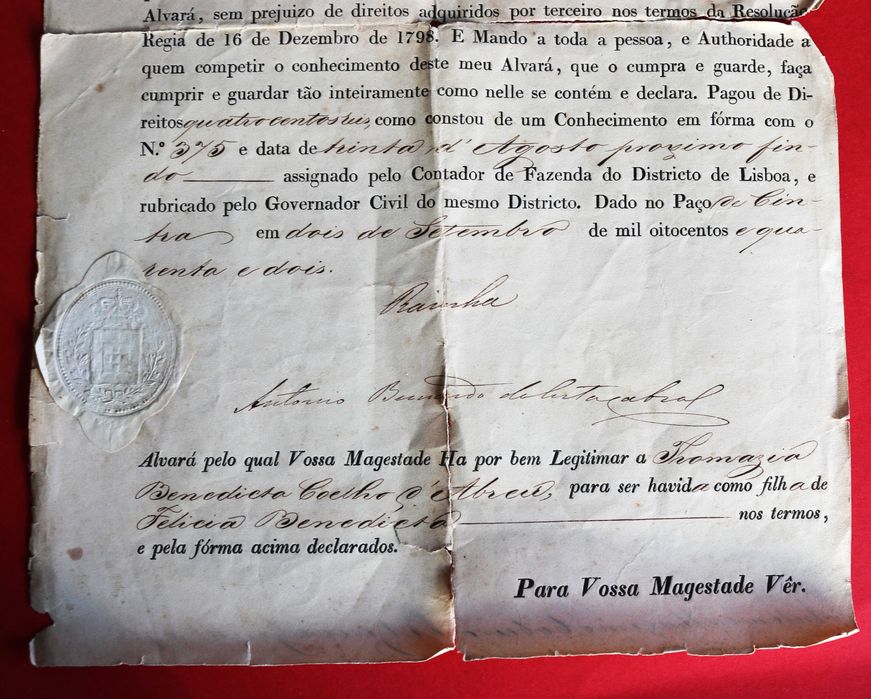 Alvará, sem prejuizo de direitos adquiridos por terceiro nos termos da Resolução
Regia de 16 de Dezembro de 1798. E Mando a toda a pessoa, e Authoridade a
quem competir o conhecimento deste meu Alvará, que o cumpra e guarde, faça
cumprir e guardar tão inteiramente como nelle se contém e declara. Pagou de Di-
reitos quatrocentos reis, como constou de um Conhecimento em fórma com o
N.º 375 e data de trinta d'Agosto proximo fin-
do assignado pelo Contador de Fazenda do Districto de Lisboa, e
rubricado pelo Governador Civil do mesmo Districto. Dado no Paço de Cin-
tra em dois de Setembro de mil oitocentos e qua-
renta e dois.
Rainha
Antonio Bernardo da Costa Cabral
Alvará pelo qual Vossa Magestade Ha por bem Legitimar a Thomazia
Benedicta Coelho d'Abreu, para ser havida como filha de
Felicia Benedicta nos termos,
e pela fórma acima declarados.
Para Vossa Magestade Vêr.